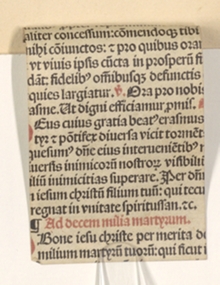 aliter concessum: cōmendoq; tibi
nihi cōiunctos: ⁊ pro quibus ora
vt viuis ipsis cūcta in prosperū fi
dāt: fidelibꝰ om̄ibusq; defunctis
quies largiatur. ℣. Ora pro nobis
asme. Ut digni efficiamur .pmis.
Eus cuius gratia beatꝰ erasmus
tyr ⁊ pōtifex diuersa vicit tormēt
quesumꝰ dn̄e eius interueniētibꝰ
uersus inimicorū nostroꝝ visibiliū
iliū inimicitias superare. Per dn̄
iesum christū filium tuū: qui tecū
regnat in vnitate spiritussan. ⁊c.
¶ Ad decem milia martyrum.
Bone iesu christe per merita de
milium martyrū tuorū: qui sicut i